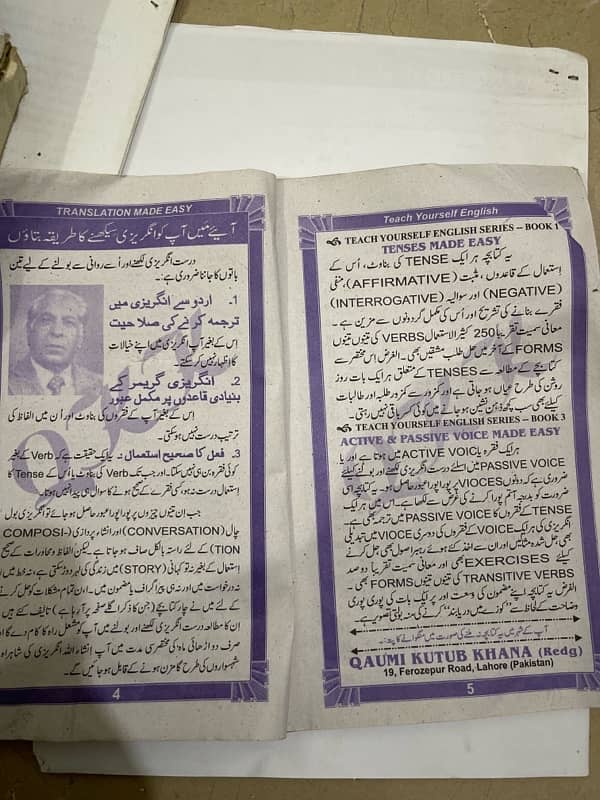 TRANSLATION MADE EASY
آیئے میں آپ کو انگریزی سیکھنے کا طریقہ بتاؤں
درست انگریزی لکھنے اور اُسے روانی سے بولنے کے لیے تین
باتوں کا جاننا ضروری ہے:۔
1. اردو سے انگریزی میں
ترجمہ کرنے کی صلاحیت
اس کے بغیر آپ انگریزی میں اپنے خیالات
کا اظہار نہیں کر سکتے۔
2. انگریزی گریمر کے
بنیادی قاعدوں پر مکمل عبور
اس کے بغیر آپ کے فقروں کی بناوٹ اور اُن میں الفاظ کی
ترتیب درست نہیں ہو سکتی۔
3. فعل کا صحیح استعمال:۔ یہ ایک حقیقت ہے کہ Verb کے بغیر
کوئی فقرہ بن ہی نہیں سکتا اور جب تک Verb کی بناوٹ یا اُس کے Tense کا
استعمال درست نہ ہو کسی فقرے کے صحیح ہونے کا سوال ہی پیدا نہیں ہوتا۔
جب ان تینوں چیزوں پر پورا پورا عبور حاصل ہو جائے تو انگریزی بول
چال (CONVERSATION) اور انشاء پردازی (COMPOSI-
TION) کے لئے راستہ بالکل صاف ہو جاتا ہے۔ لیکن الفاظ و محاورات کے صحیح
استعمال کے بغیر نہ تو کہانی (STORY) میں زندگی کی لہر دوڑ سکتی ہے، نہ خط میں
نہ درخواست میں اور نہ ہی پیراگراف یا مضمون میں۔ ان تمام مشکلات کو حل کرنے
کے لئے میں نے چار کتابچے (جن کا ذکر اگلے صفحہ پر آ رہا ہے) تالیف کئے ہیں
اِن کا مطالعہ درست انگریزی لکھنے اور بولنے میں آپ کو مشعل راہ کا کام دے گا اور
صرف دو اڑھائی ماہ کی مختصر سی مدت میں آپ انشاء اللہ انگریزی کی شاہراہ
شہسواروں کی طرح گامزن ہونے کے قابل ہو جائیں گے۔
4
Teach Yourself English
TEACH YOURSELF ENGLISH SERIES – BOOK 1
TENSES MADE EASY
یہ کتابچہ ہر ایک TENSE کی بناوٹ، اُس کے
استعمال کے قاعدوں، مثبت (AFFIRMATIVE)، منفی
(NEGATIVE) اور سوالیہ (INTERROGATIVE)
فقرے بنانے کی تشریح اور اُس کی مکمل گردونوں سے مزین ہے۔
معانی سمیت تقریباً 250 کثیر الاستعمال VERBS کی تینوں تینوں
FORMS کے آخر میں حل طلب مشقیں بھی۔ الغرض اس مختصر سے
کتابچے کے مطالعہ سے TENSES کے متعلق ہر ایک بات روز
روشن کی طرح عیاں ہو جاتی ہے اور کمزور سے کمزور طلبہ اور طالبات
کیلئے بھی سب کچھ ذہن نشین ہو جانے میں کوئی کسر باقی نہیں رہتی۔
TEACH YOURSELF ENGLISH SERIES – BOOK 3
ACTIVE & PASSIVE VOICE MADE EASY
ہر ایک فقرہ یا ACTIVE VOICE میں ہوتا ہے اور یا
PASSIVE VOICE میں اسلئے درست انگریزی لکھنے اور بولنے کیلئے
ضروری ہے کہ دونوں VIOCES پر پورا پورا عبور حاصل ہو۔ یہ کتابچہ اسی
ضرورت کو بدرجہ اَتم پورا کرنے کی غرض سے لکھا ہے۔ اس میں ہر ایک
TENSE کے فقروں کا PASSIVE VOICE میں ترجمہ بھی ہے۔
انگریزی کی ہر ایک VOICE کے فقروں کی دوسری VOICE میں تبدیلی
بھی حل شدہ مثالیں اور ان سے اخذ کئے ہوئے رہبر اصول بھی حل کرنے
کیلئے EXERCISES بھی اور معانی سمیت تقریباً دو صد
TRANSITIVE VERBS کی تینوں تینوں FORMS بھی۔
الغرض یہ کتابچہ اپنے مضمون کی وسعت اور ہر ایک بات کی پوری پوری
وضاحت کے لحاظ سے "کوزے میں دریا بند" کرنے کی منہ بولتی تصویر ہے۔
آپ کے شہر میں یہ کتابچہ نہ ملنے کی صورت میں منگوانے کا پتہ:۔
QAUMI KUTUB KHANA (Redg)
19, Ferozepur Road, Lahore (Pakistan)
5